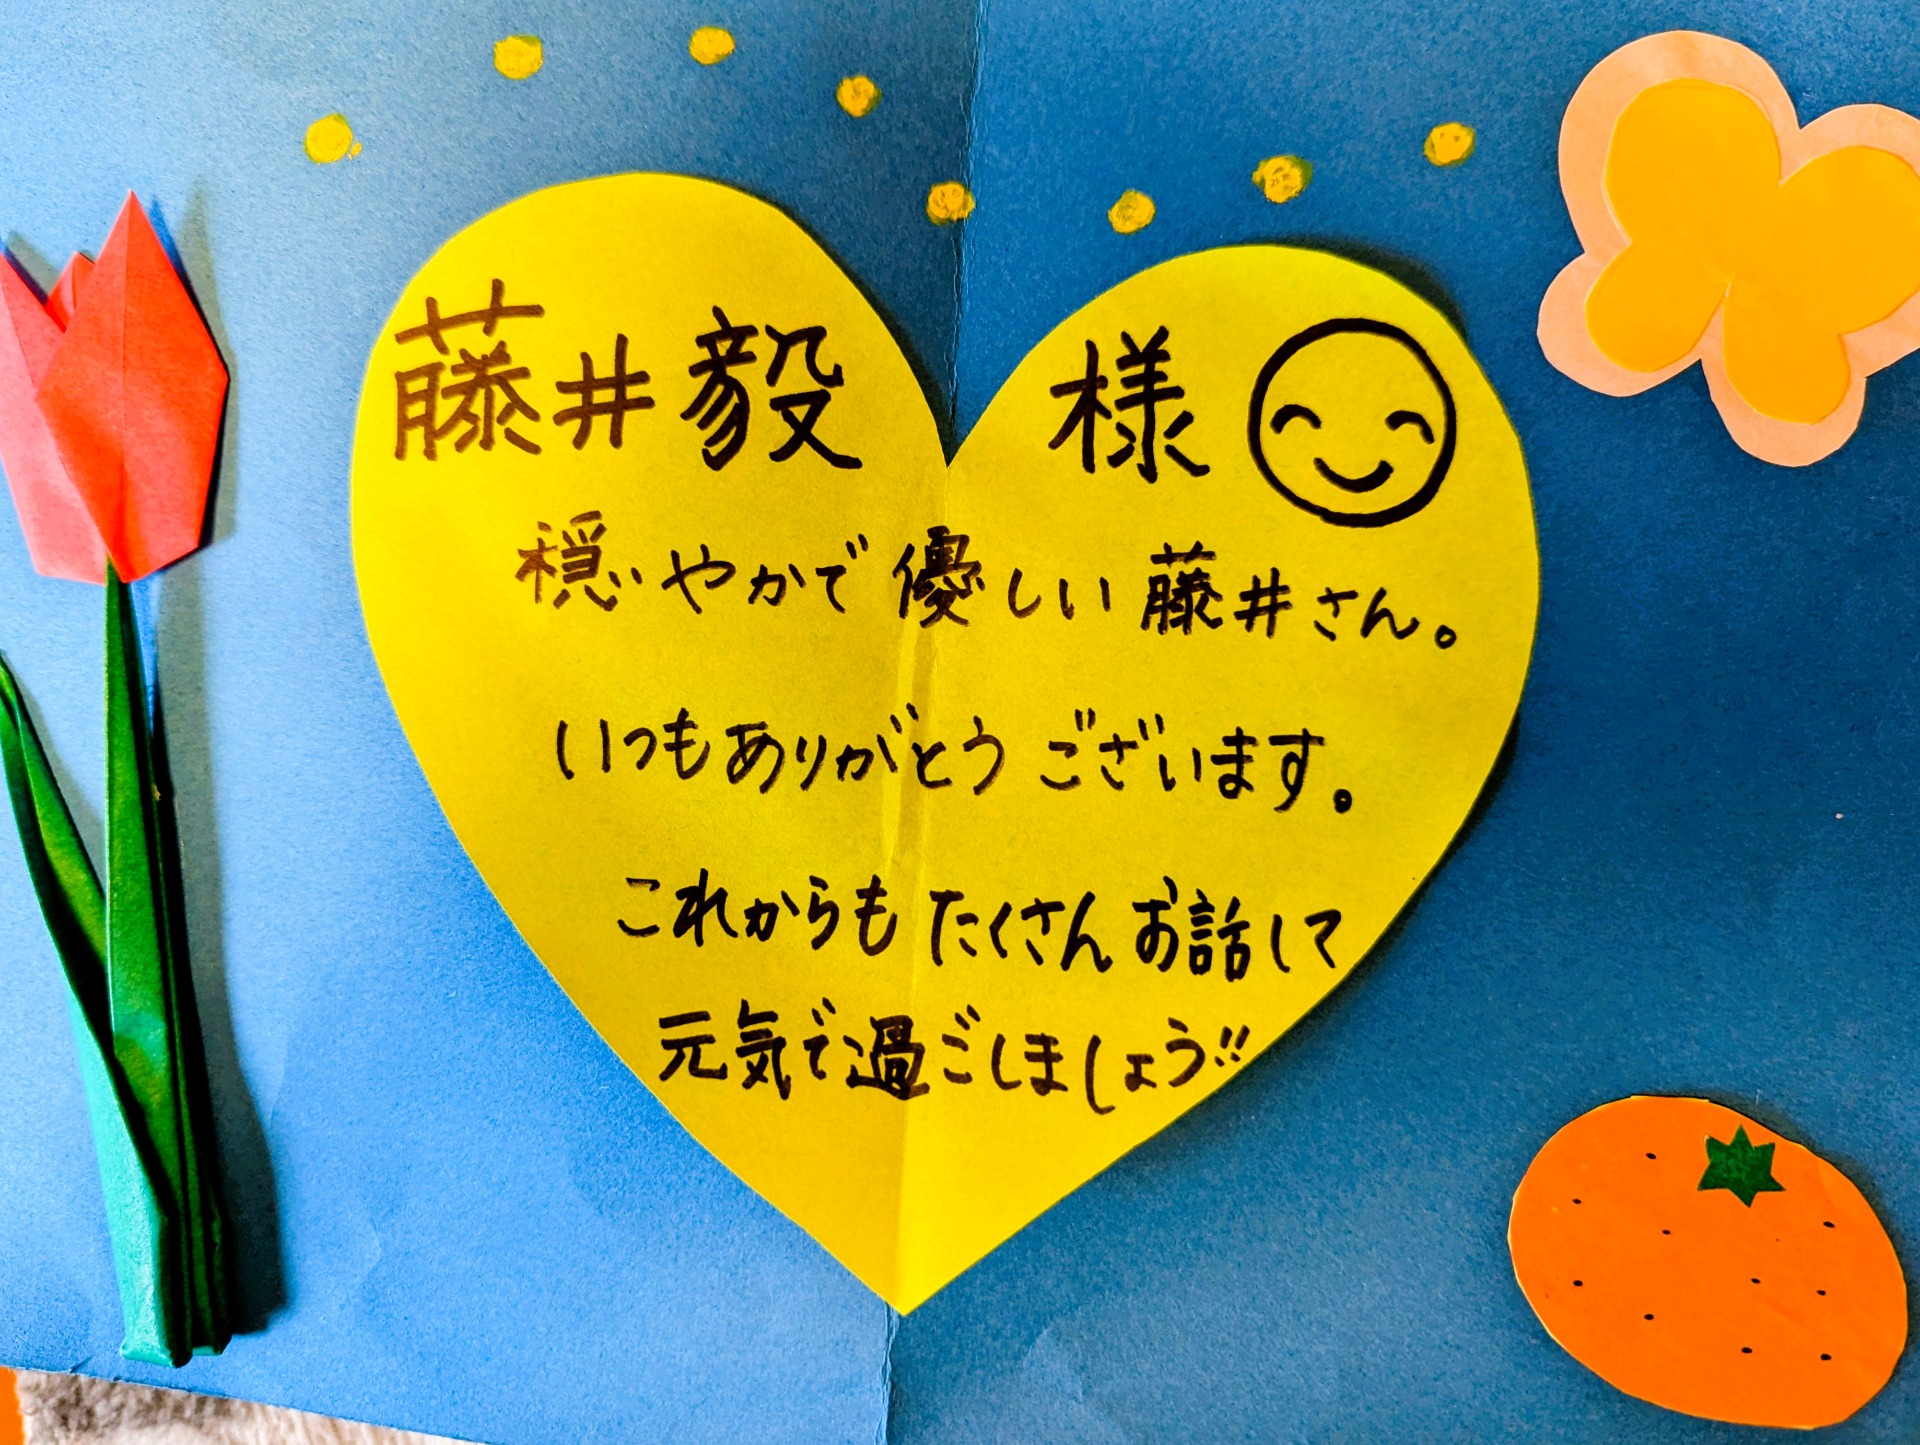 藤井毅 様
穏やかで優しい藤井さん。
いつもありがとうございます。
これからもたくさんお話して
元気で過ごしましょう!!